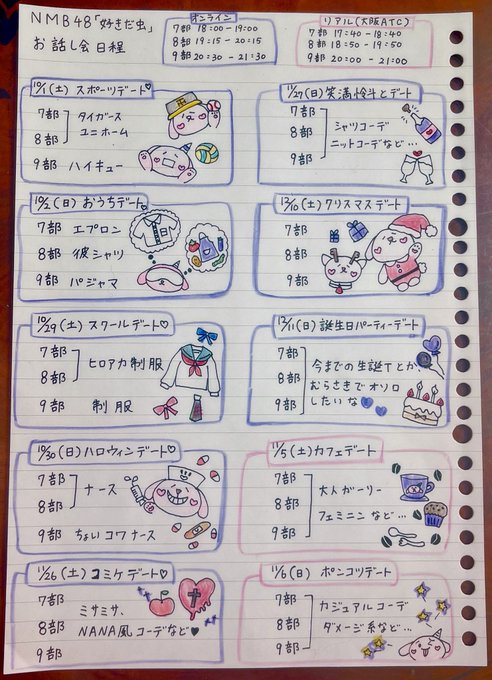 NMB48「好きだ虫」
お話し会日程
オンライン
7部 18:00-19:00
8部 19:15-20:15
9部 20:30-21:30
リアル(大阪ATC)
7部 17:40-18:40
8部 18:50-19:50
9部 20:00-21:00
10/1(土)スポーツデート♡
7部
8部
タイガース
ユニホーム
9部 ハイキュー
10/2(日)おうちデート♡
7部 エプロン
8部 彼シャツ
9部 パジャマ
10/29(土)スクールデート♡
7部
8部
ヒロアカ制服
9部 制服
10/30(日)ハロウィンデート♡
7部
8部
ナース
9部 ちょいコワナース
11/26(土)コミケデート♡
7部
8部
9部
ミサミサ、
NANA風コーデなど♥
11/27(日)笑満燴斗とデート
7部
8部
9部
シャツコーデ
ニットコーデなど…
12/10(土)クリスマスデート
7部
8部
9部
12/11(日)誕生日パーティーデート
7部
8部
9部
今までの生誕Tとか
むらさきでオソロ
したいな
11/5(土)カフェデート
7部
8部
9部
大人ガーリー
フェミニンなど…
11/6(日)ポンコツデート
7部
8部
9部
カジュアルコーデ
ダメージ系など…